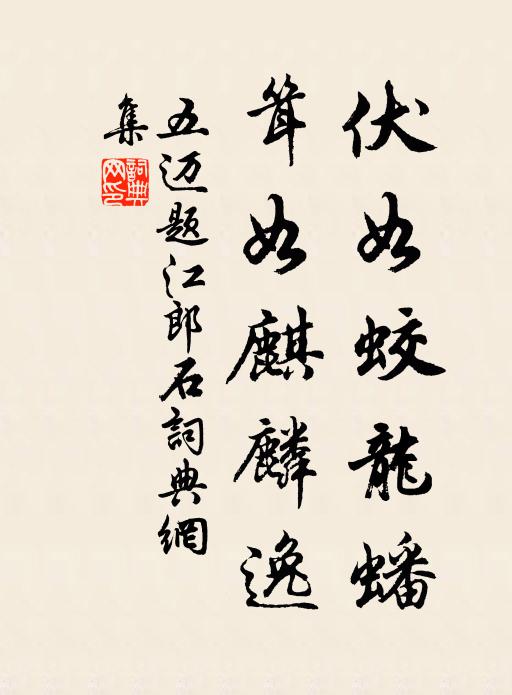 伏如蛟龍蟠
耸如麒麟逸
五迈题江郎石詞典網
集
詞典網印